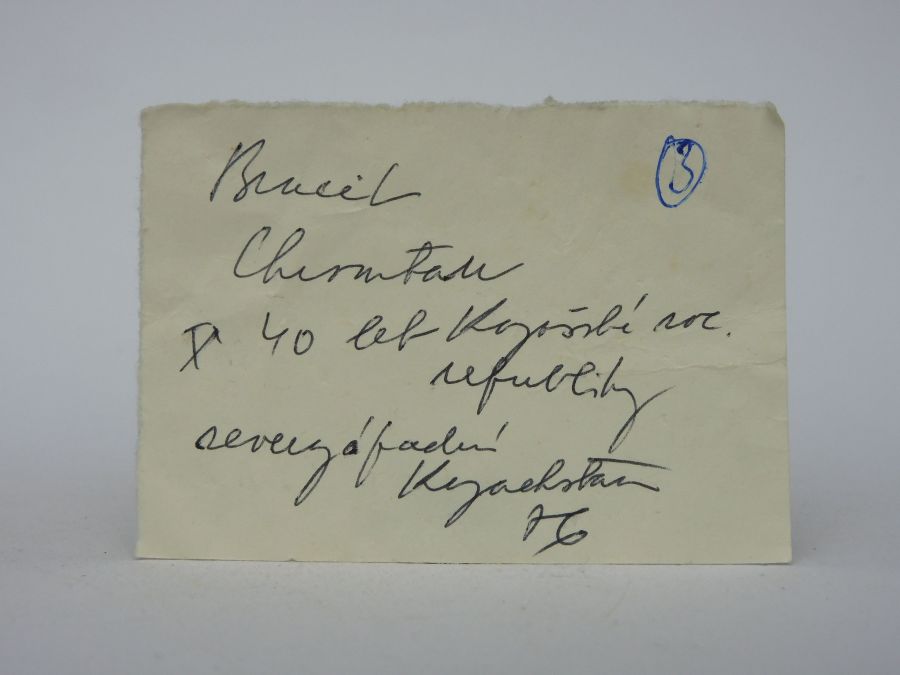 Brucit
3
Chromtau
X 40 let Kazašské soc.
republiky
severozápadní
Kazachstan
76